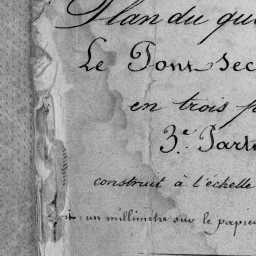 Plan du qu
Le Pont Sec
en trois p
3.e Part
construit à l'échelle
un millimètre sur le papie